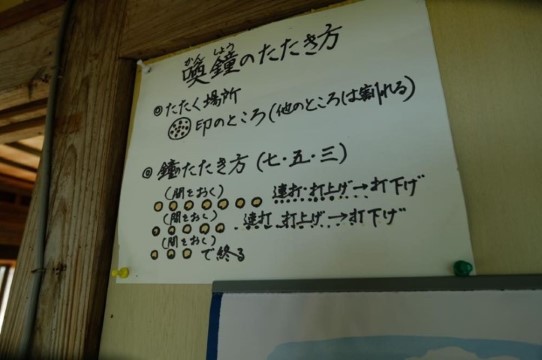 かんしょう
喚鐘のたたき方
◎たたく場所
印のところ(他のところは割れる)
◎鐘のたたき方(七・五・三)
(間をおく)
●●●●●●● 連打・打上げ→打下げ
(間をおく)
●●●●● 連打、打上げ→打下げ
(間をおく)
●●●で終る